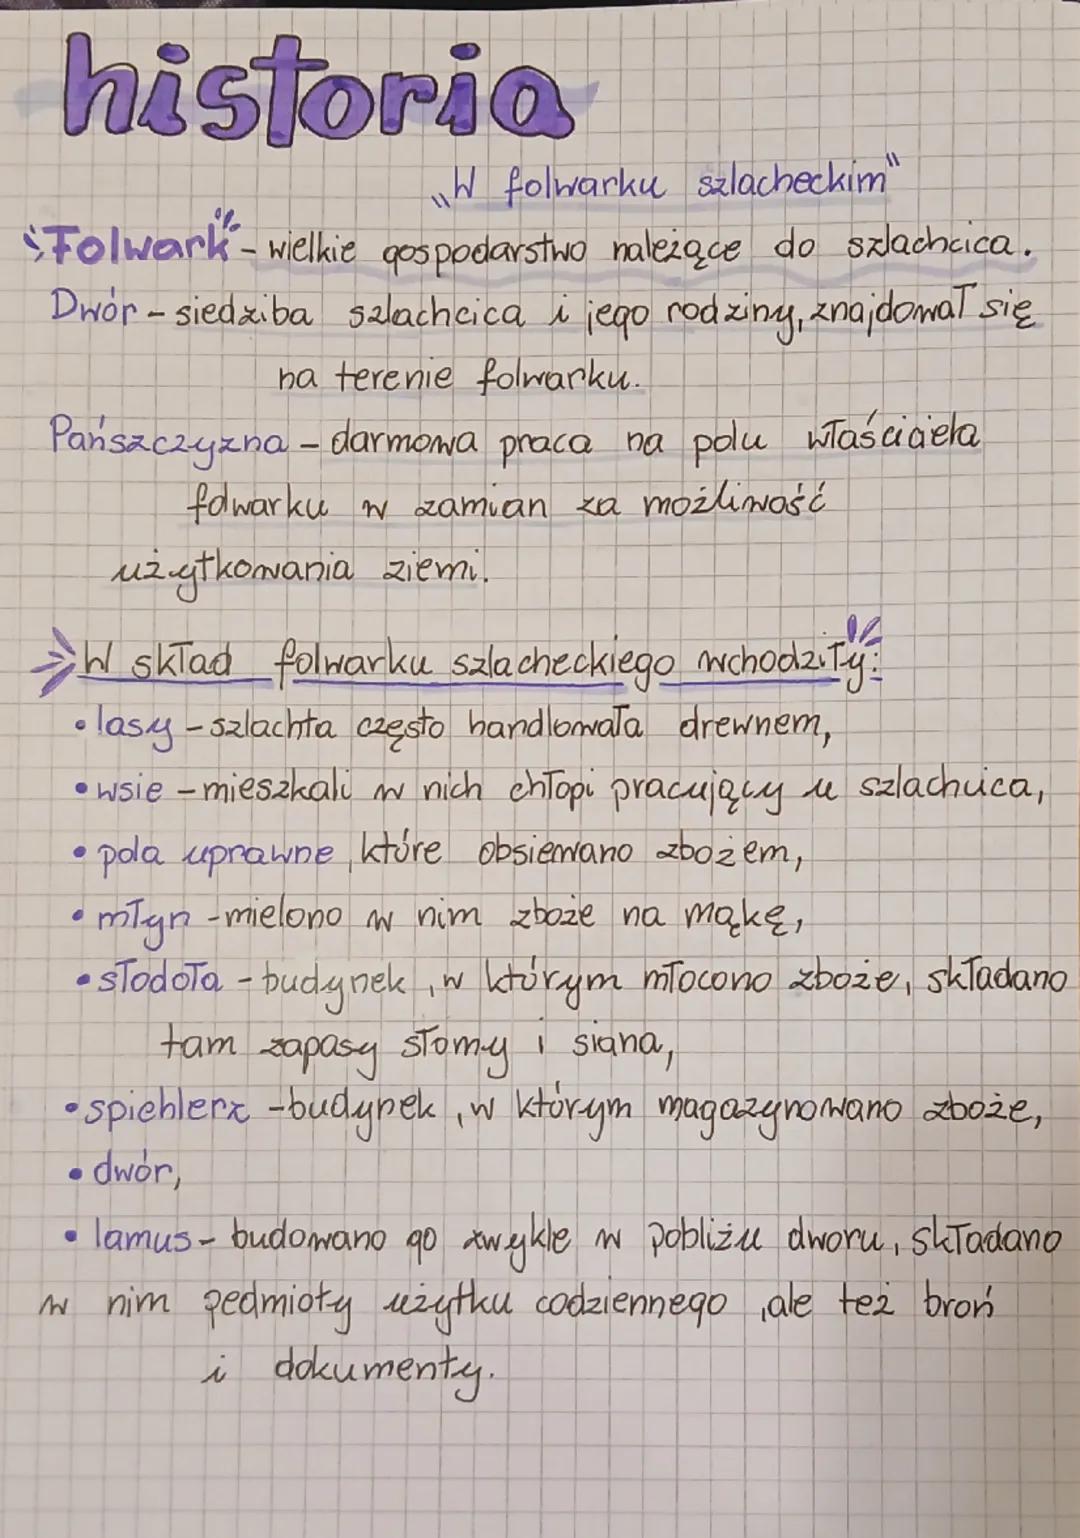 historia
„W folwarku szlacheckim"
Folwark - wielkie gospodarstwo należące do szlachcica.
Dwór - siedziba szlachcica i jego rodziny, znajdował się
na terenie folwarku.
Pańszczyzna - darmowa praca na polu właściciela
folwarku w zamian za możliwość
użytkowania ziemi.
W skład folwarku szlacheckiego wchodziły:
• lasy - szlachta często handlowała drewnem,
• wsie - mieszkali w nich chłopi pracujący u szlachcica,
• pola uprawne, które obsiewano zbożem,
• młyn - mielono w nim zboże na mąkę,
• stodoła - budynek, w którym młócono zboże, składano
tam zapasy słomy i siana,
• spichlerz - budynek, w którym magazynowano zboże,
• dwór,
• lamus - budowano go zwykle w pobliżu dworu, składano
w nim pedmioty użytku codziennego, ale też broń
i dokumenty.